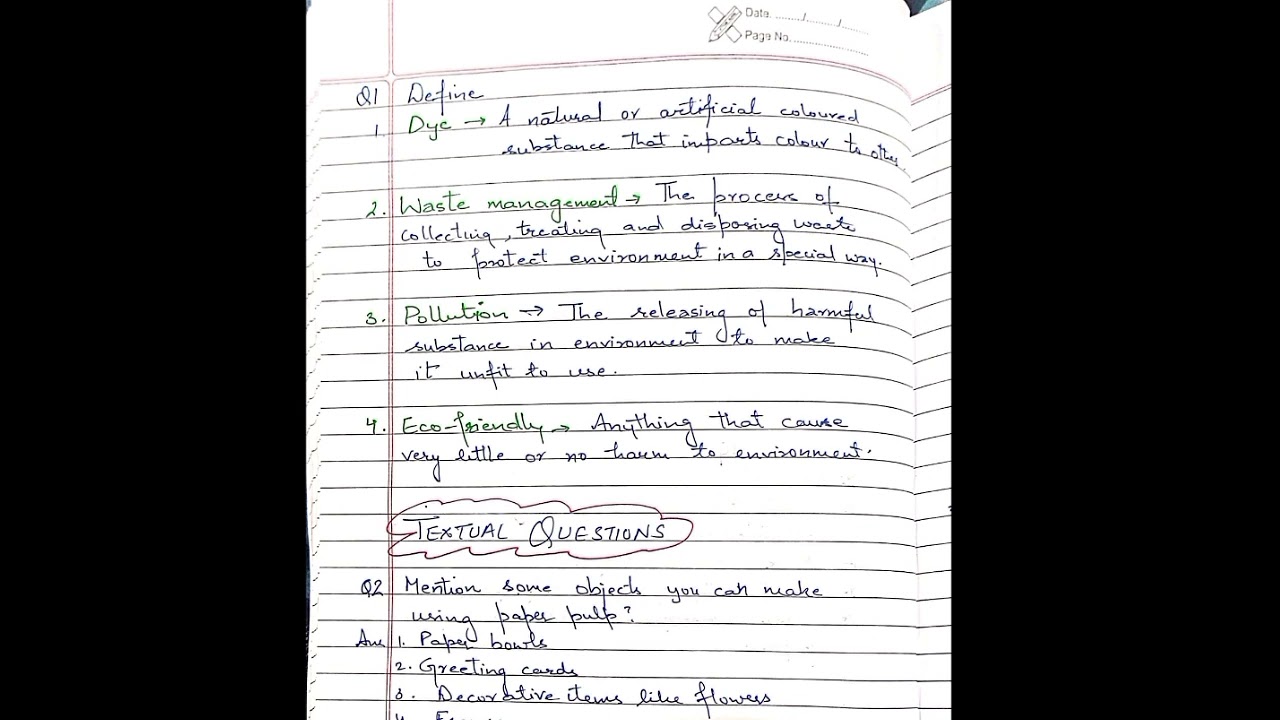 Date. ....../....../......
Page No. ....................
Q1 Define
1. Dye → A natural or artificial coloured
substance that imparts colour to other.
2. Waste management → The process of
collecting, treating and disposing waste
to protect environment in a special way.
3. Pollution → The releasing of harmful
substance in environment to make
it unfit to use.
4. Eco-friendly → Anything that cause
very little or no harm to environment.
TEXTUAL QUESTIONS
Q2 Mention some objects you can make
using paper pulp?
Ans 1. Paper bowls
2. Greeting cards
3. Decorative items like flowers
4.